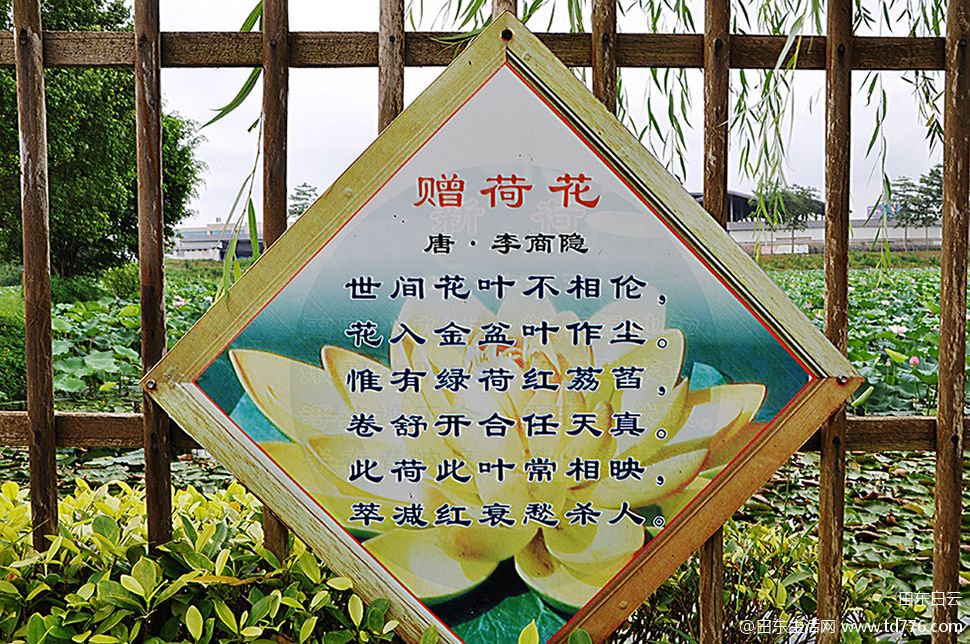 赠荷花
唐·李商隐
世间花叶不相伦，
花入金盆叶作尘。
惟有绿荷红荔萏，
卷舒开合任天真。
此荷此叶常相映，
萃减红衰愁杀人。
田东白云
@田东生活网 www.td776.com